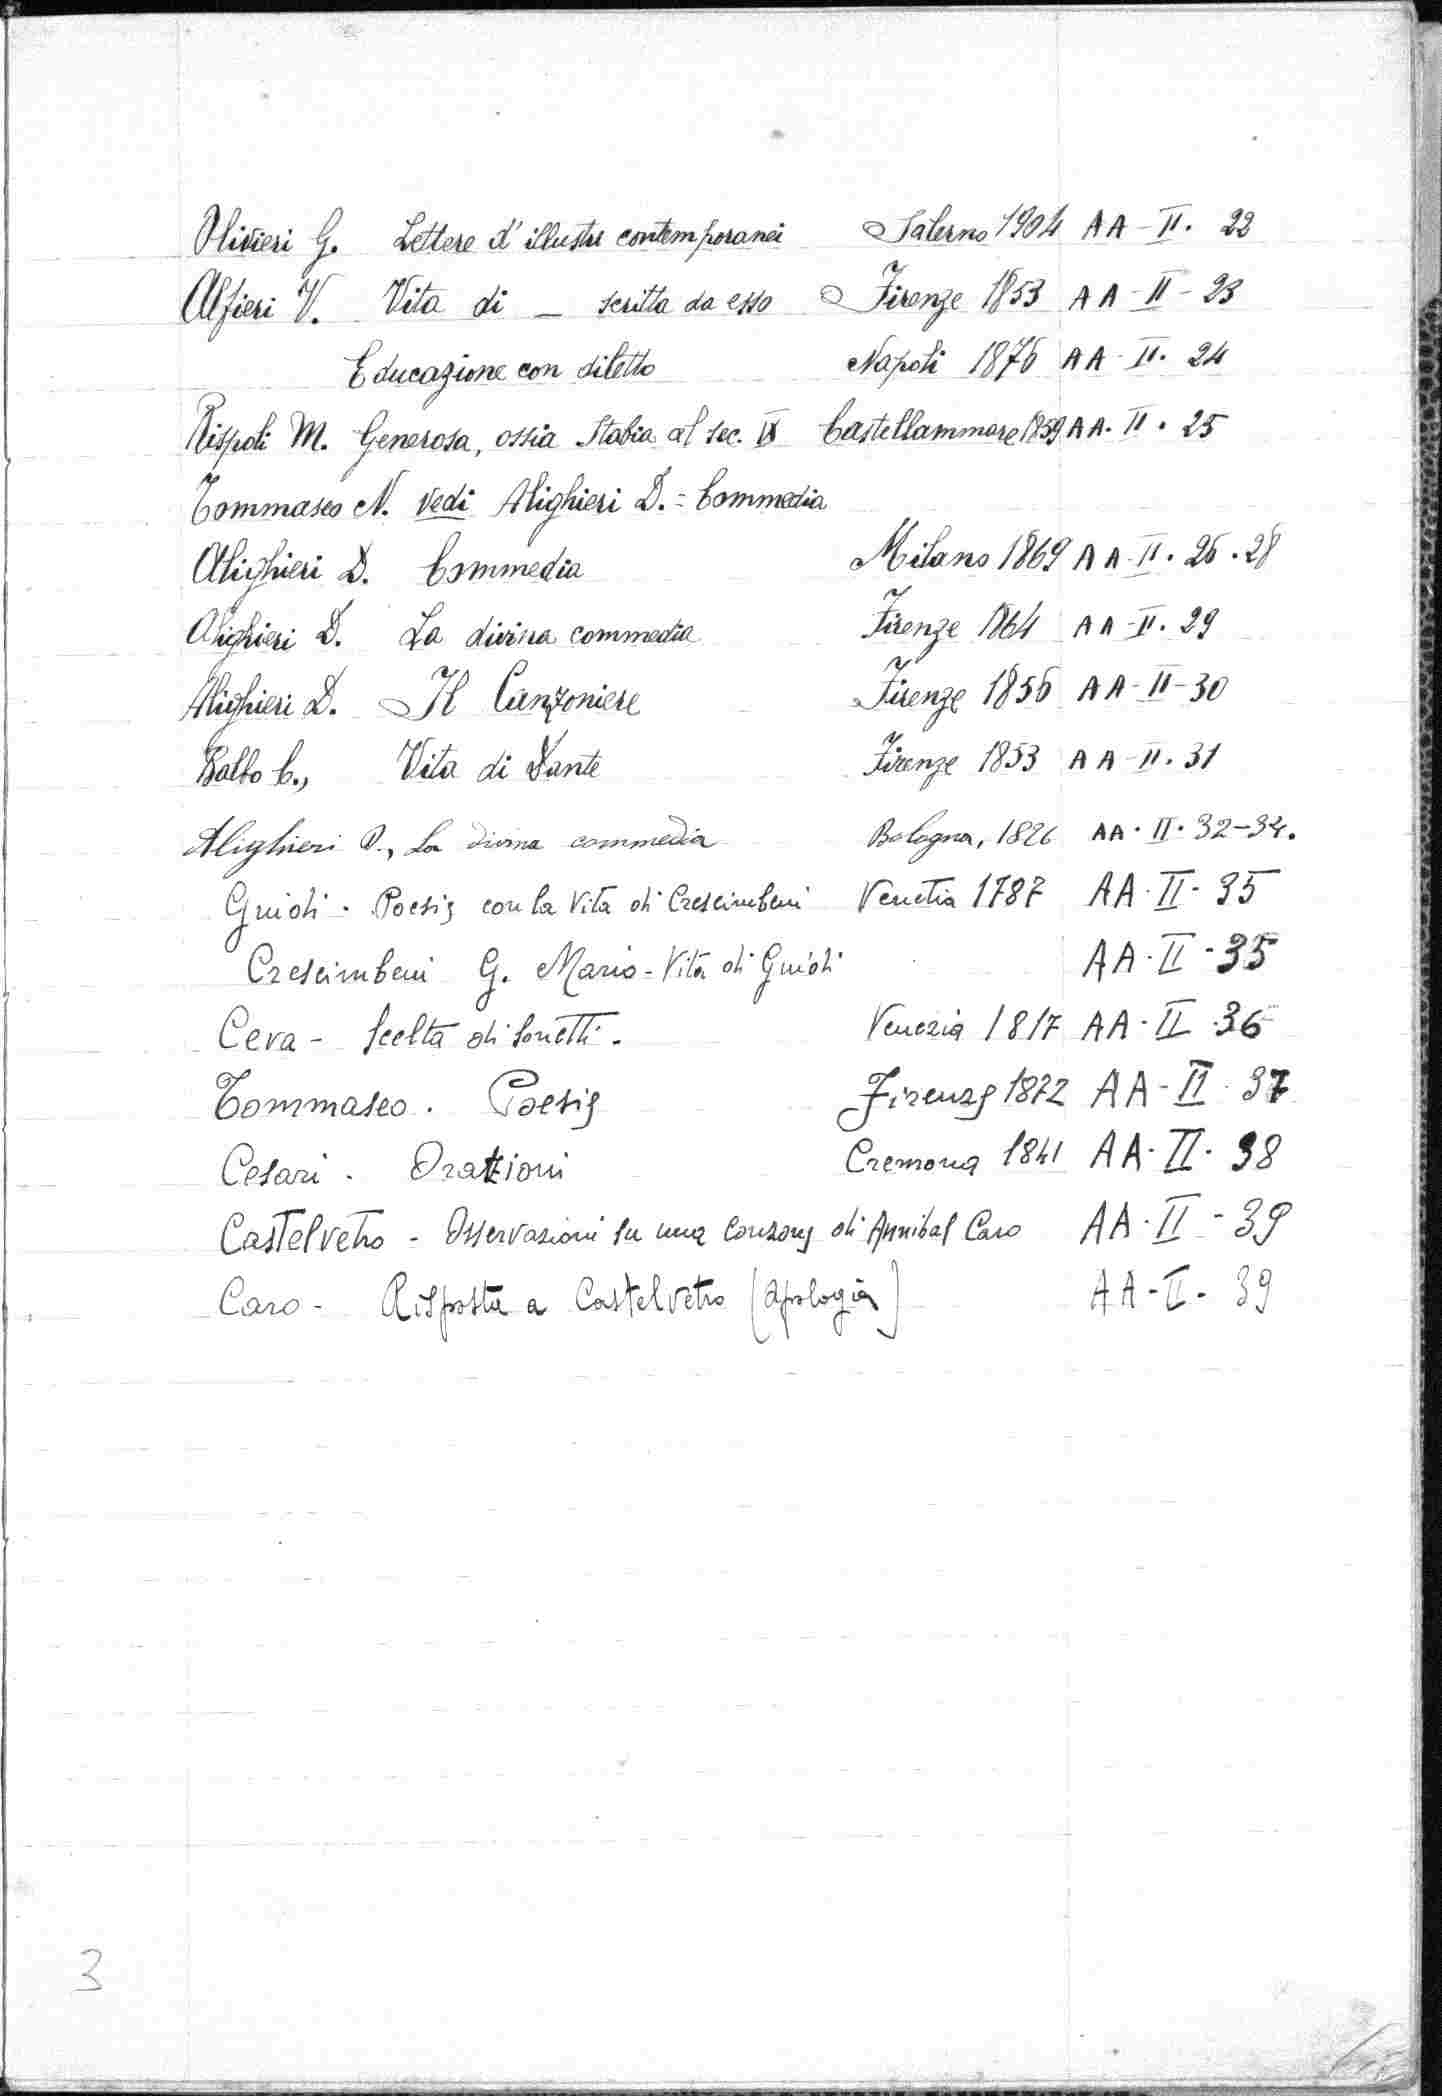 Olivieri G. Lettere d'illustri contemporanei Salerno 1904 AA-II. 22
Alfieri V. Vita di _ scritta da esso Firenze 1853 AA-II-23
Educazione con diletto Napoli 1876 AA-II. 24
Rispoli M. Generosa, ossia Stabia al sec. IX Castellammare 1859 AA. II. 25
Tommaseo N. vedi Alighieri D. = Commedia
Alighieri D. Commedia Milano 1869 AA-II. 26.28
Alighieri D. La divina commedia Firenze 1864 AA-II. 29
Alighieri D. Il Canzoniere Firenze 1856 AA-II-30
Balbo C., Vita di Dante Firenze 1853 AA-II. 31
Alighieri D., La divina commedia Bologna, 1826 AA. II. 32-34.
Guidi. Poesie con la Vita di Crescimbeni Venetia 1787 AA. II. 35
Crescimbeni G. Mario-Vita di Guidi AA. II-35
Ceva - Scelta di sonetti. Venezia 1817 AA. II. 36
Tommaseo. Poesie Firenze 1872 AA-II. 37
Cesari. Orazioni Cremona 1841 AA. II. 38
Castelvetro - Osservazioni su una canzone di Annibal Caro AA. II-39
Caro - Risposta a Castelvetro (apologia) AA-II. 39
3